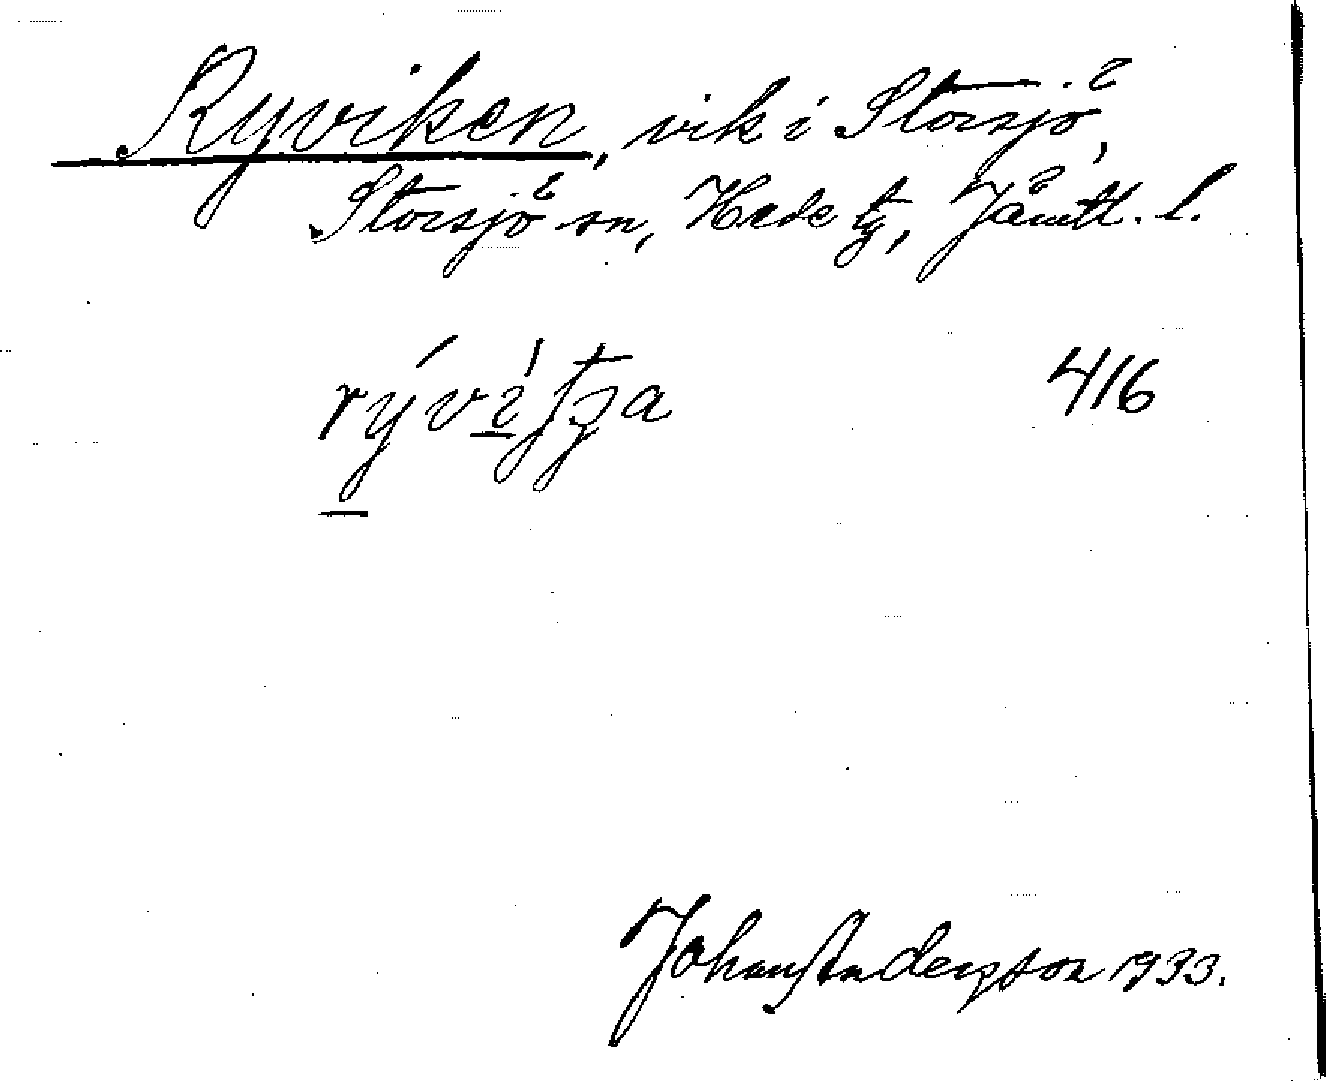 Ryviken, vik i Storsjö,
Storsjö sn, Hede tg, Jämtl. l.
416
Johan Andersson 1933.